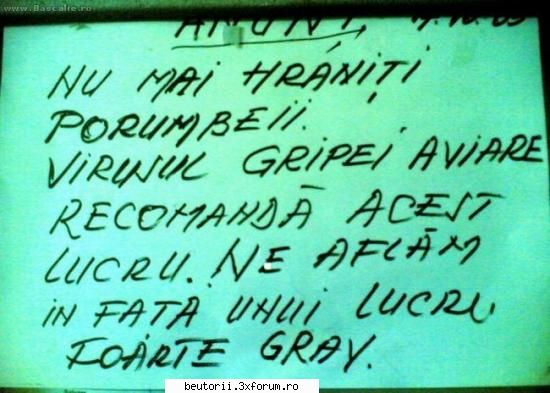 www.Bascalie.ro
ANUNȚ,
NU MAI HRĂNIȚI
PORUMBEII.
VIRUSUL GRIPEI AVIARE
RECOMANDĂ ACEST
LUCRU. NE AFLĂM
IN FATA UNUI LUCRU
FOARTE GRAV.
beutorii.3xforum.ro